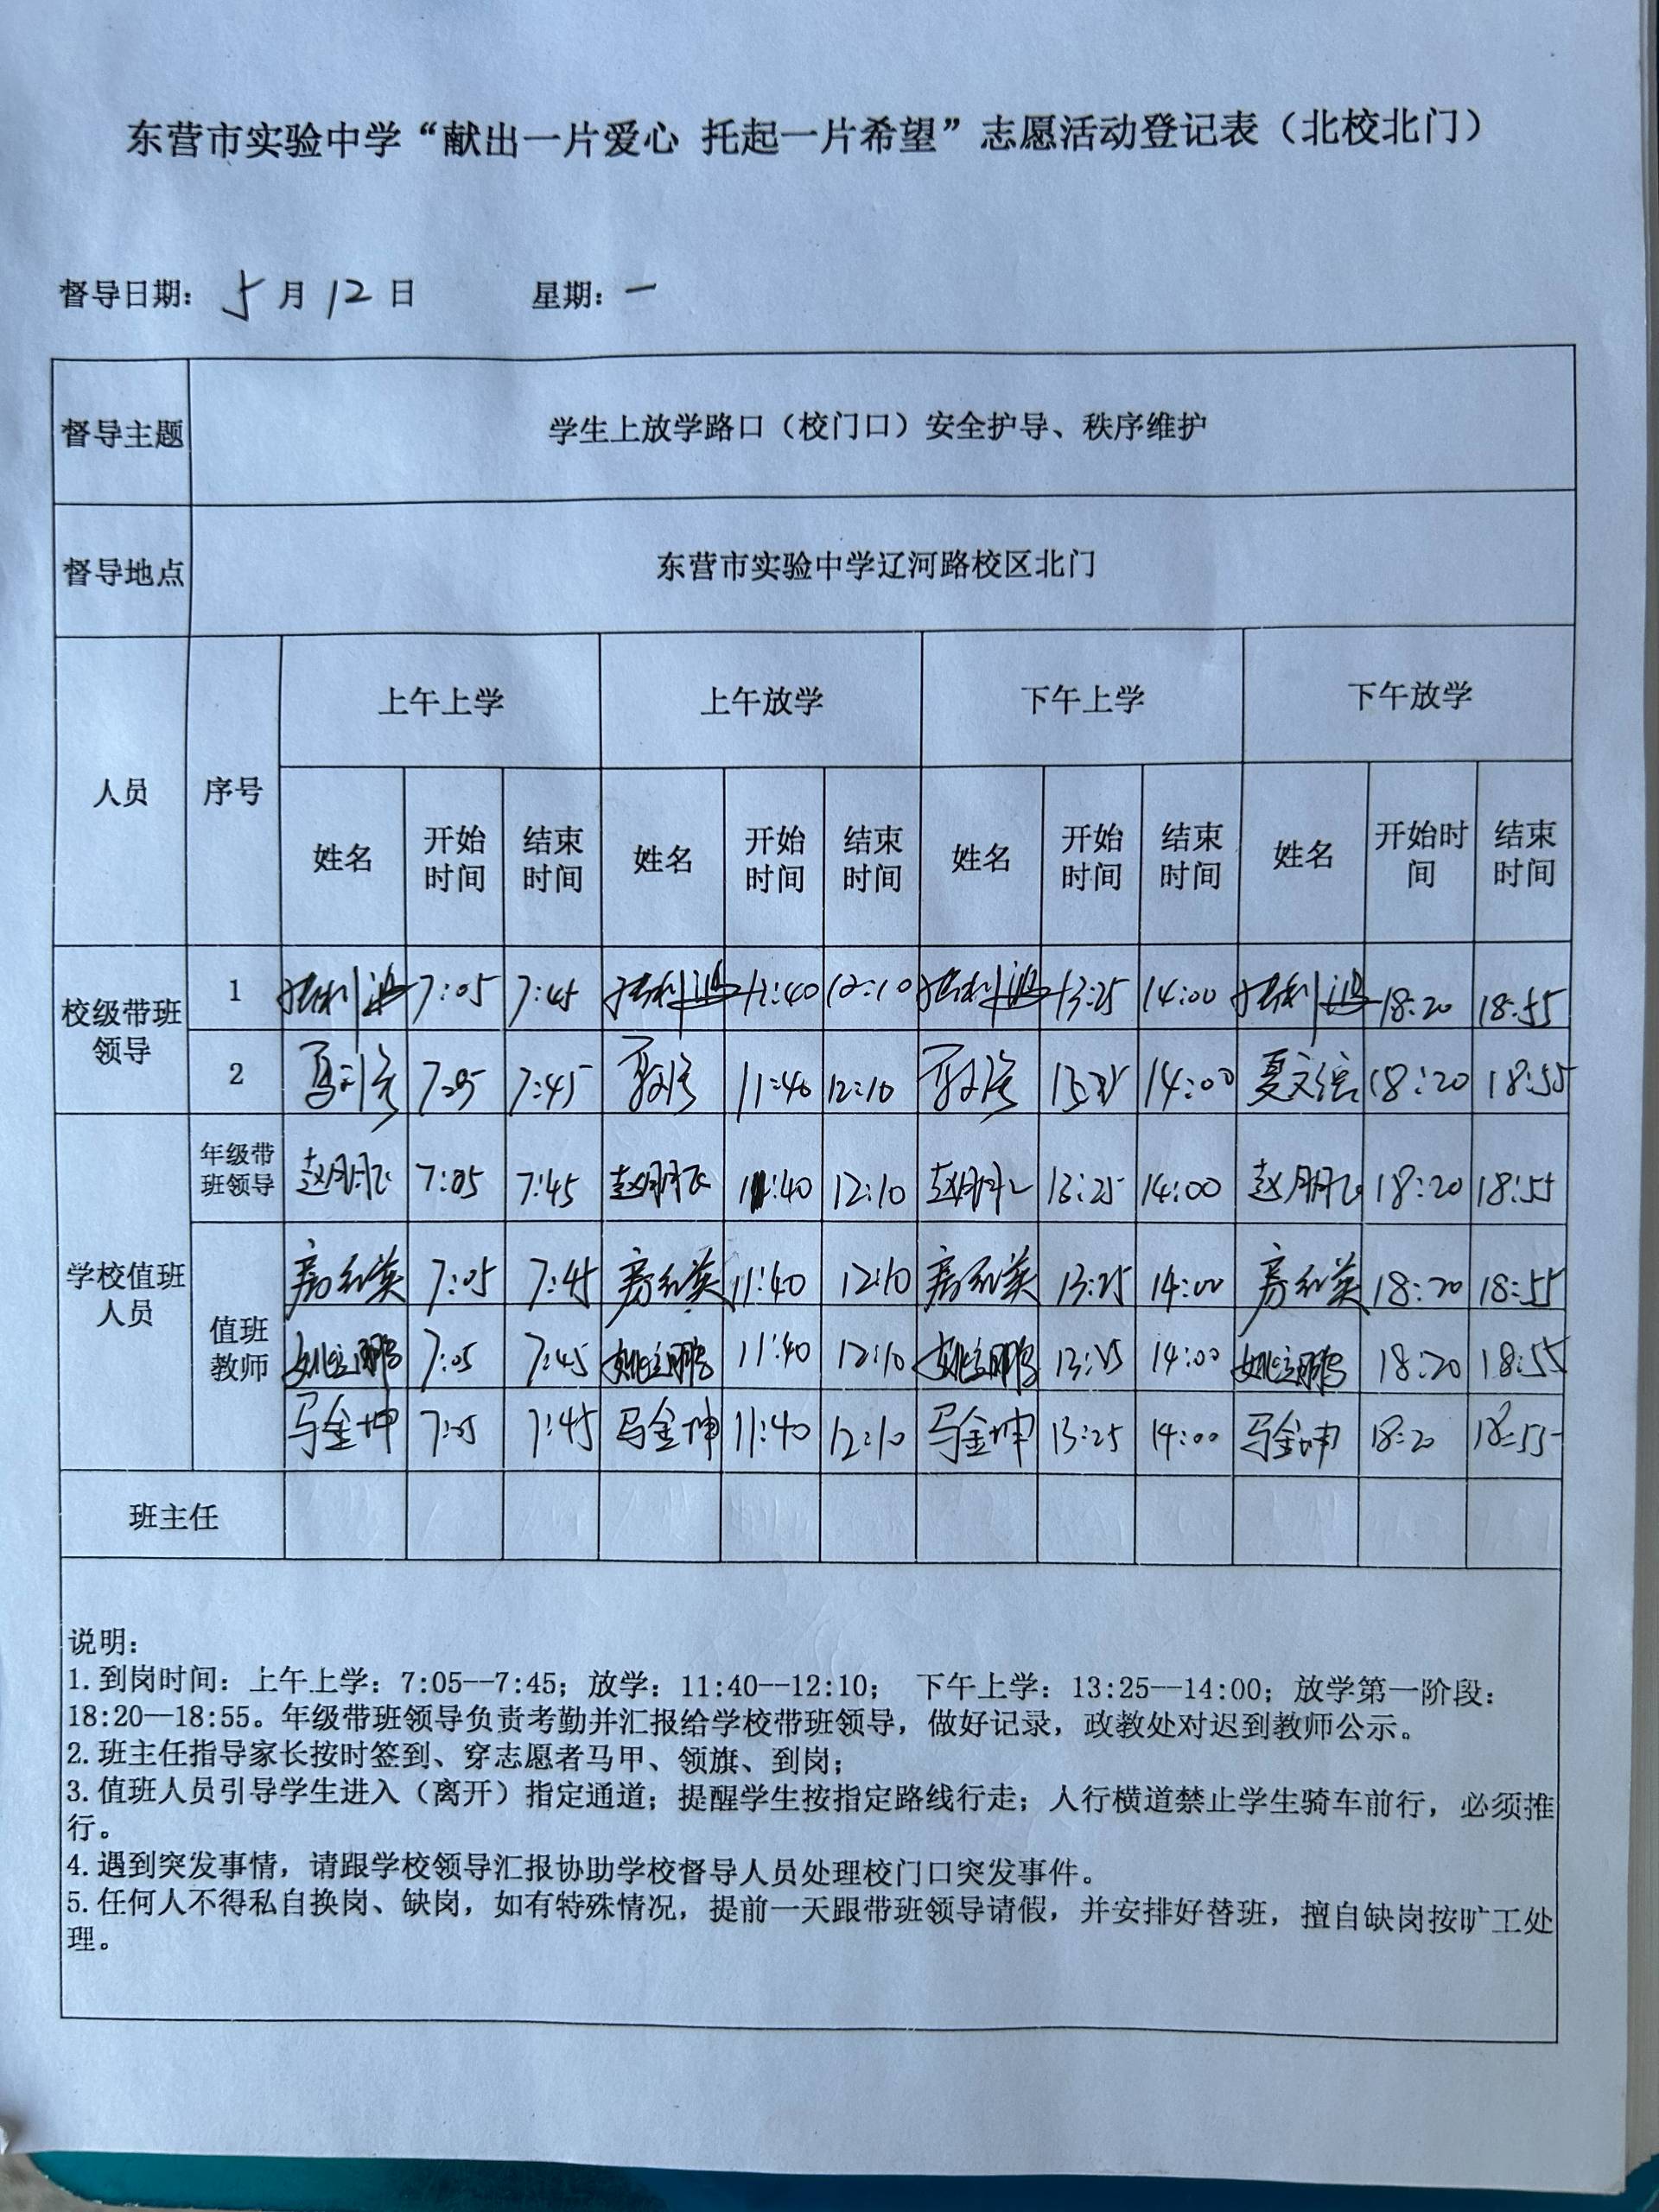 东营市实验中学“献出一片爱心 托起一片希望”志愿活动登记表（北校北门）
督导日期： 5 月 12 日 星期：一
督导主题 学生上放学路口（校门口）安全护导、秩序维护
督导地点 东营市实验中学辽河路校区北门
人员 序号 上午上学 上午放学 下午上学 下午放学
姓名 开始时间 结束时间 姓名 开始时间 结束时间 姓名 开始时间 结束时间 姓名 开始时间 结束时间
校级带班领导
1 7:05 7:45 11:40 12:10 13:25 14:00 18:20 18:55
2 7:05 7:45 11:40 12:10 13:25 14:00 18:20 18:55
学校值班人员
年级带班领导 赵朋飞 7:05 7:45 赵朋飞 11:40 12:10 赵朋飞 13:25 14:00 赵朋飞 18:20 18:55
值班教师
房红英 7:05 7:45 房红英 11:40 12:10 房红英 13:25 14:00 房红英 18:20 18:55
姚立鹏 7:05 7:45 姚立鹏 11:40 12:10 姚立鹏 13:25 14:00 姚立鹏 18:20 18:55
马金坤 7:05 7:45 马金坤 11:40 12:10 马金坤 13:25 14:00 马金坤 18:20 18:55
班主任
说明：
1.到岗时间：上午上学：7:05--7:45；放学：11:40--12:10； 下午上学：13:25--14:00；放学第一阶段：
18:20--18:55。年级带班领导负责考勤并汇报给学校带班领导，做好记录，政教处对迟到教师公示。
2.班主任指导家长按时签到、穿志愿者马甲、领旗、到岗；
3.值班人员引导学生进入（离开）指定通道；提醒学生按指定路线行走；人行横道禁止学生骑车前行，必须推
行。
4.遇到突发事情，请跟学校领导汇报协助学校督导人员处理校门口突发事件。
5.任何人不得私自换岗、缺岗，如有特殊情况，提前一天跟带班领导请假，并安排好替班，擅自缺岗按旷工处
理。